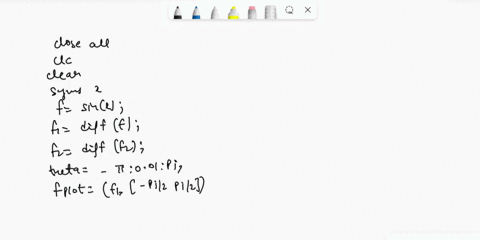 close all
clc
clear
syms 2
f = sin(x);
f1 = diff (f);
f2 = diff (f2);
theta = - π : 0.01 : Pi,
fplot = (f1, [ -Pi/2 Pi/2])